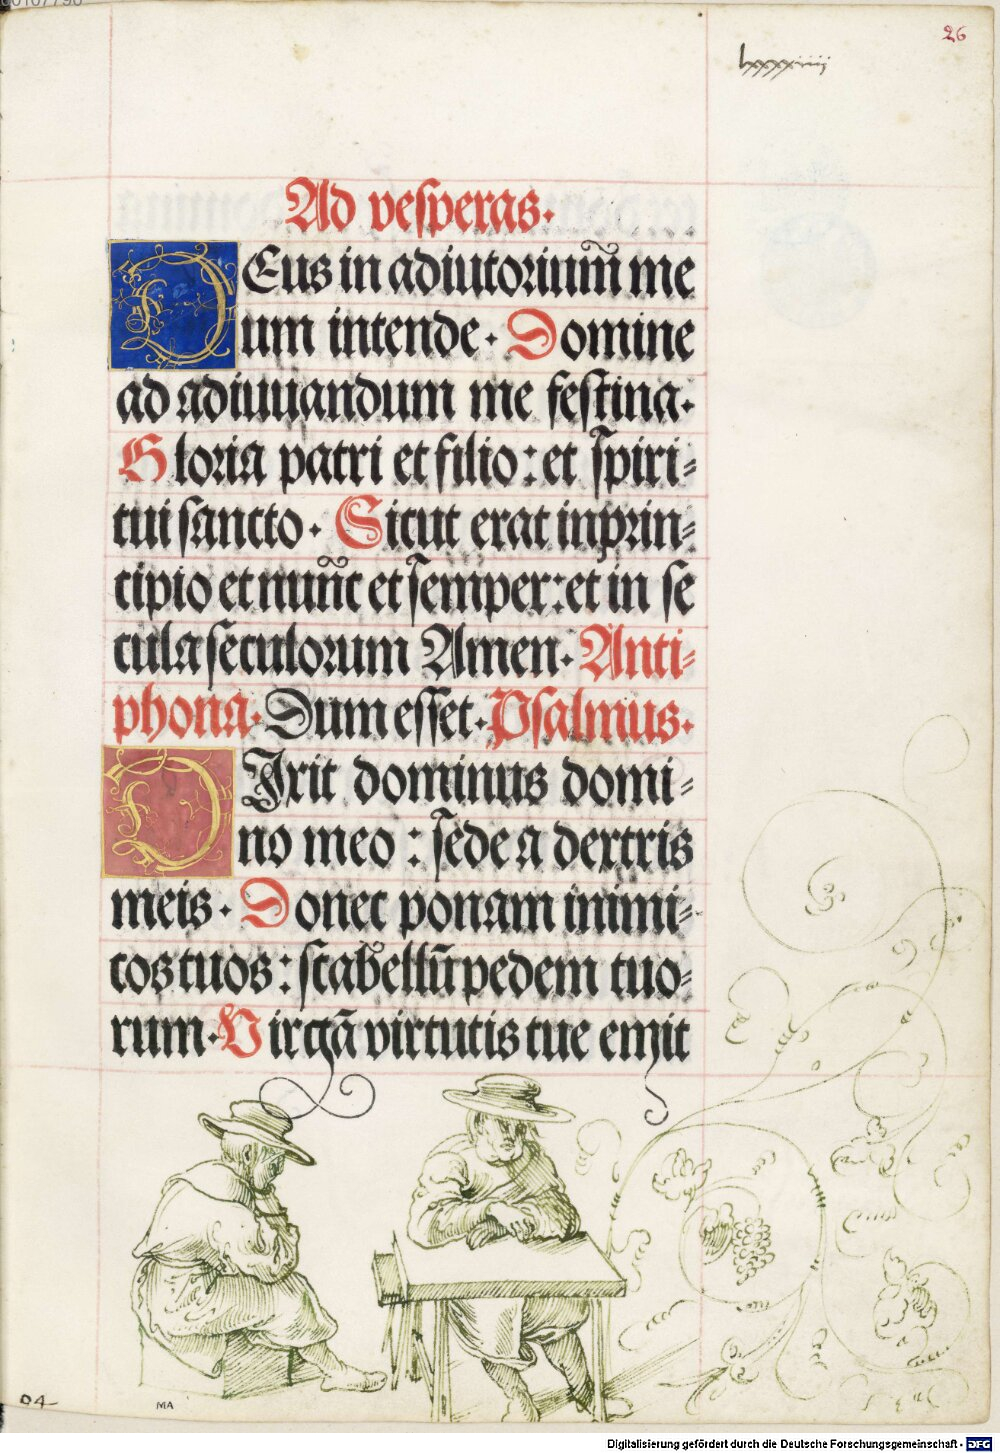 00107790
26
lxxxxiiii
Ad vesperas.
DEus in adiutorium̄ me
um intende. Domine
ad adiuuandum me festina.
Gloria patri et filio: et spiri-
tui sancto. Sicut erat in prin-
cipio et nunc et semper: et in se
cula seculorum Amen. Anti-
phona. Dum esset. Psalmus.
DIxit dominus domi-
no meo: sede a dextris
meis. Donec ponam inimi-
cos tuos: scabellū pedem tuo-
rum. Virgā virtutis tue emit
94
MA
Digitalisierung gefördert durch die Deutsche Forschungsgemeinschaft - DFG